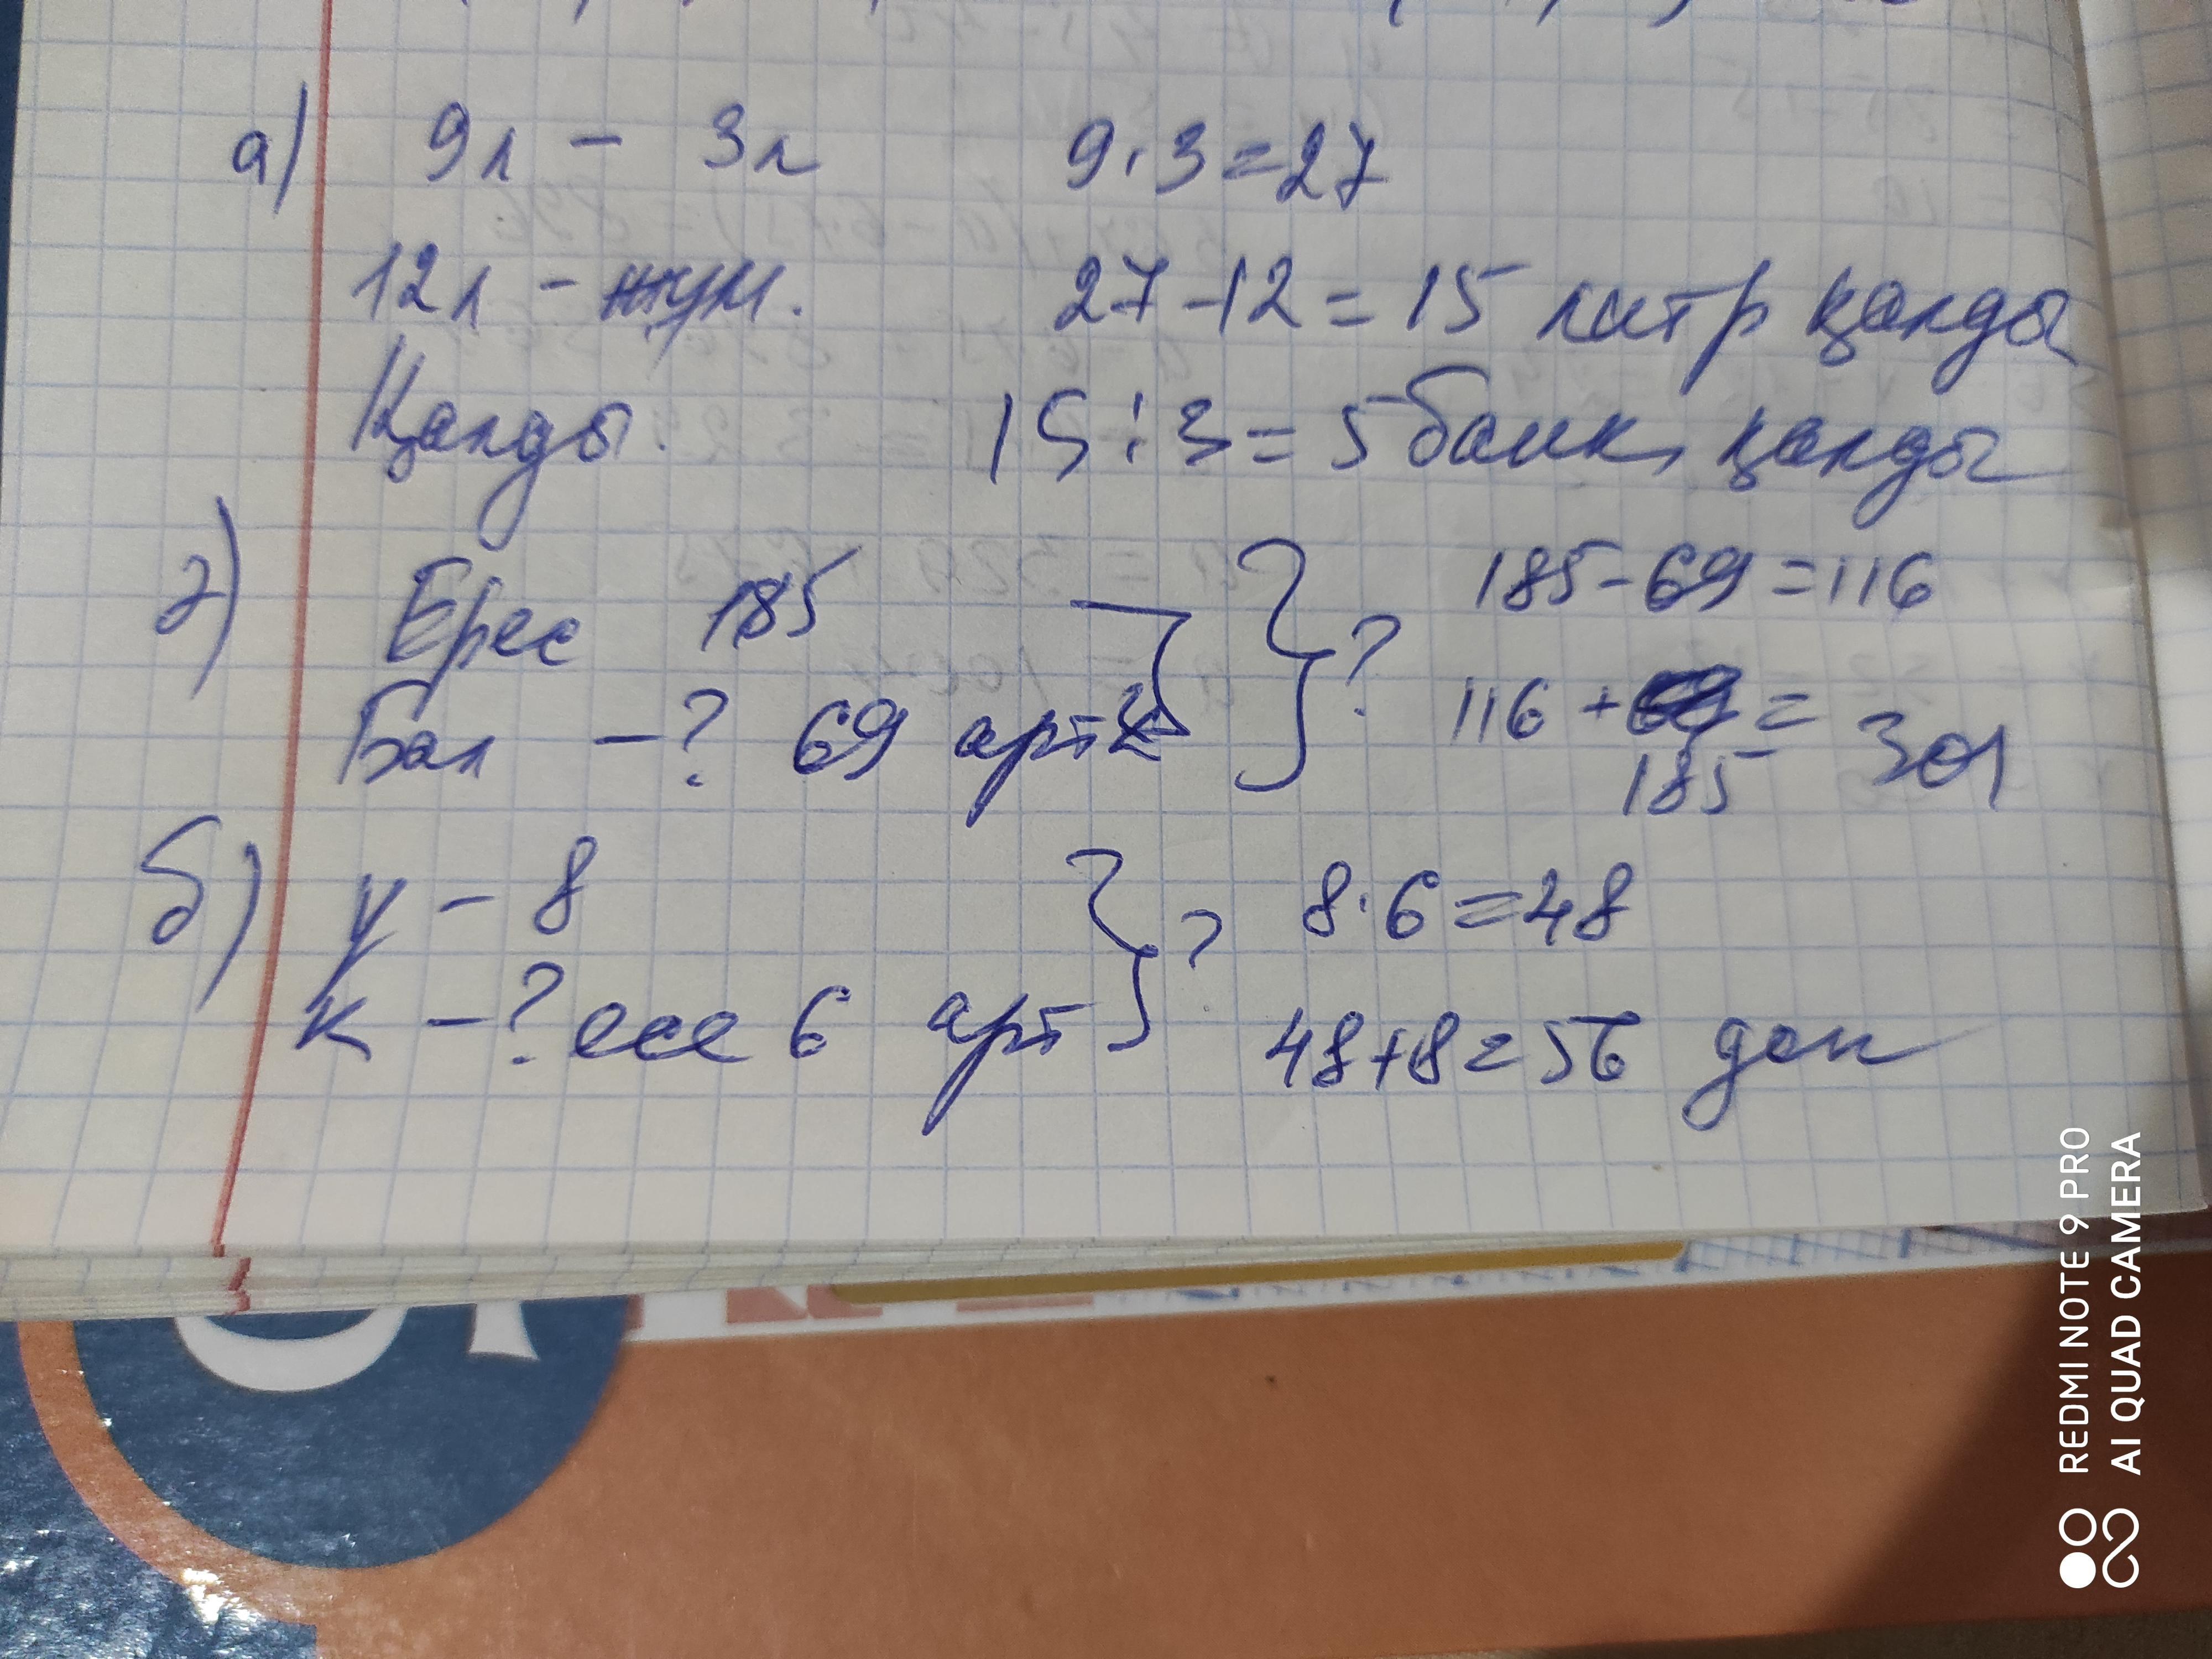 а) 9л - 3л 9·3=27
12л - жум. 27-12=15 литр қалды
Қалды. 15:3=5 банк, қалды
г) Ерес 185 } ? 185-69=116
Бал -? 69 артқ 116+185=301
б) у - 8 } ? 8·6=48
к -? есе 6 арт 48+8=56 дап
REDMI NOTE 9 PRO
AI QUAD CAMERA